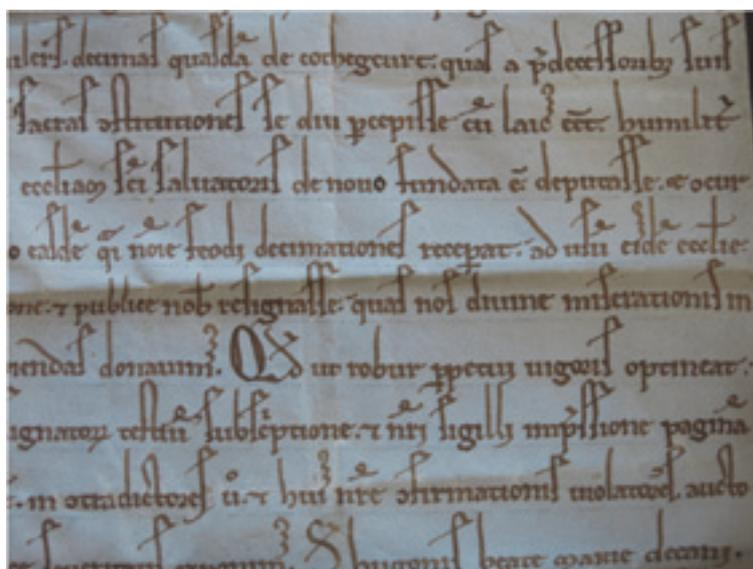 decimas quasdā de cochegeure: quas a p̄decessorib; suis
sacras ꝯstitutiones se diu ꝑcepisse cū laic̄ eēt. humilit̄
eccl̄iam sc̄i saluatoris de nouo fundata ē deputasse. et
easdē q̄i noīe feodi decimationes recepat. ad usū eidē eccl̄ie
⁊ publice nob̄ resignasse. quas nos diuine miserationis in
donauim᷒. Qd ut robur ꝑpetuū uigoris optineat.
testiū subsc̄ptione. ⁊ nr̄i sigilli imp̄ssione pagina
in ꝯtradictores ů. ⁊ hui᷒ nr̄e ꝯfirmationis uiolatores. aucto
S. hugonis beate marie decani.